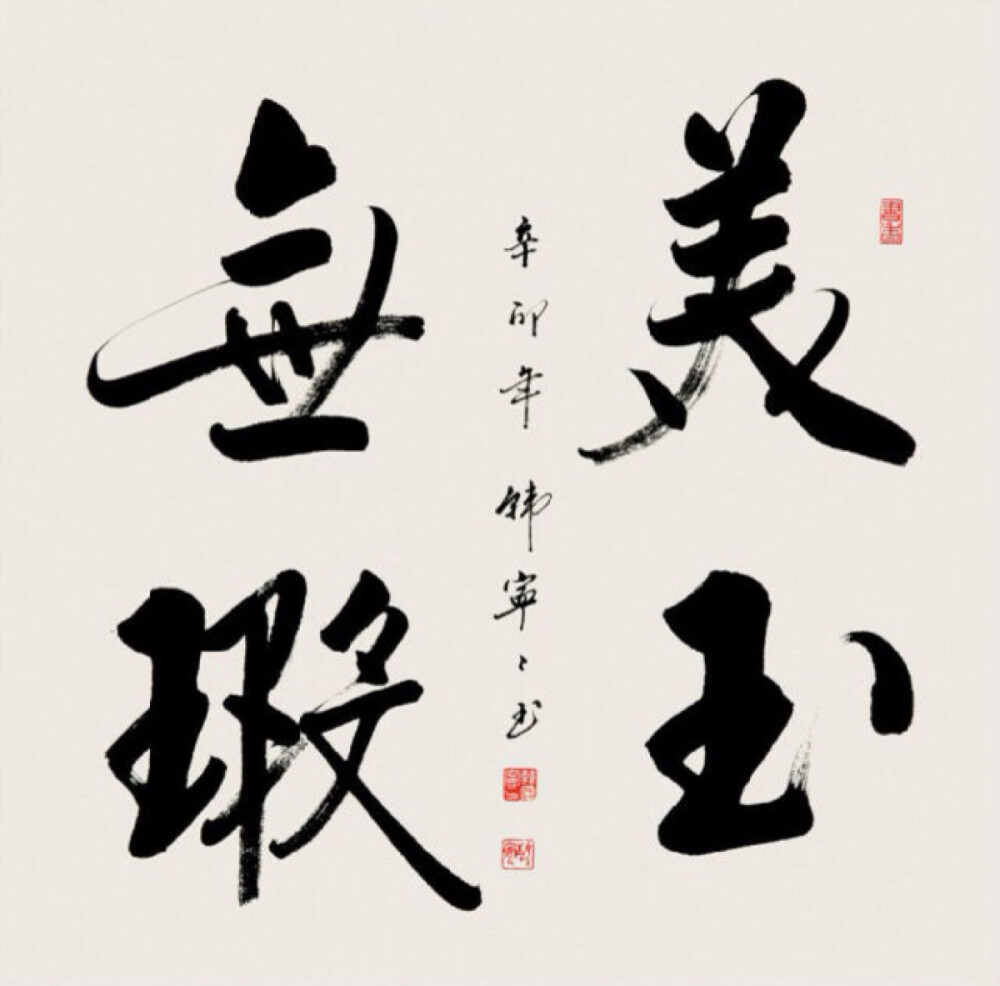 美玉
無瑕
辛卯年韩寧〻书